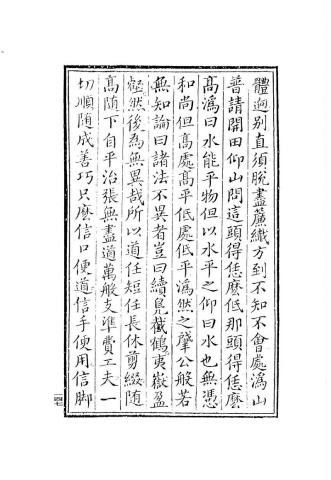 體迥别直須脫盡廉纖方到不知不會處潙山
普請開田仰山問這頭得恁麽低那頭得恁麽
高潙曰水能平物但以水平之仰曰水也無憑
和尚但高處高平低處低平潙然之肇公般若
無知論曰諸法不異者豈曰續鳧截鶴夷嶽盈
壑然後為無異哉所以道任短任長休剪綴随
高随下自平治張無盡道萬般支準費工夫一
切順随成善巧只麽信口便道信手便用信脚
四七